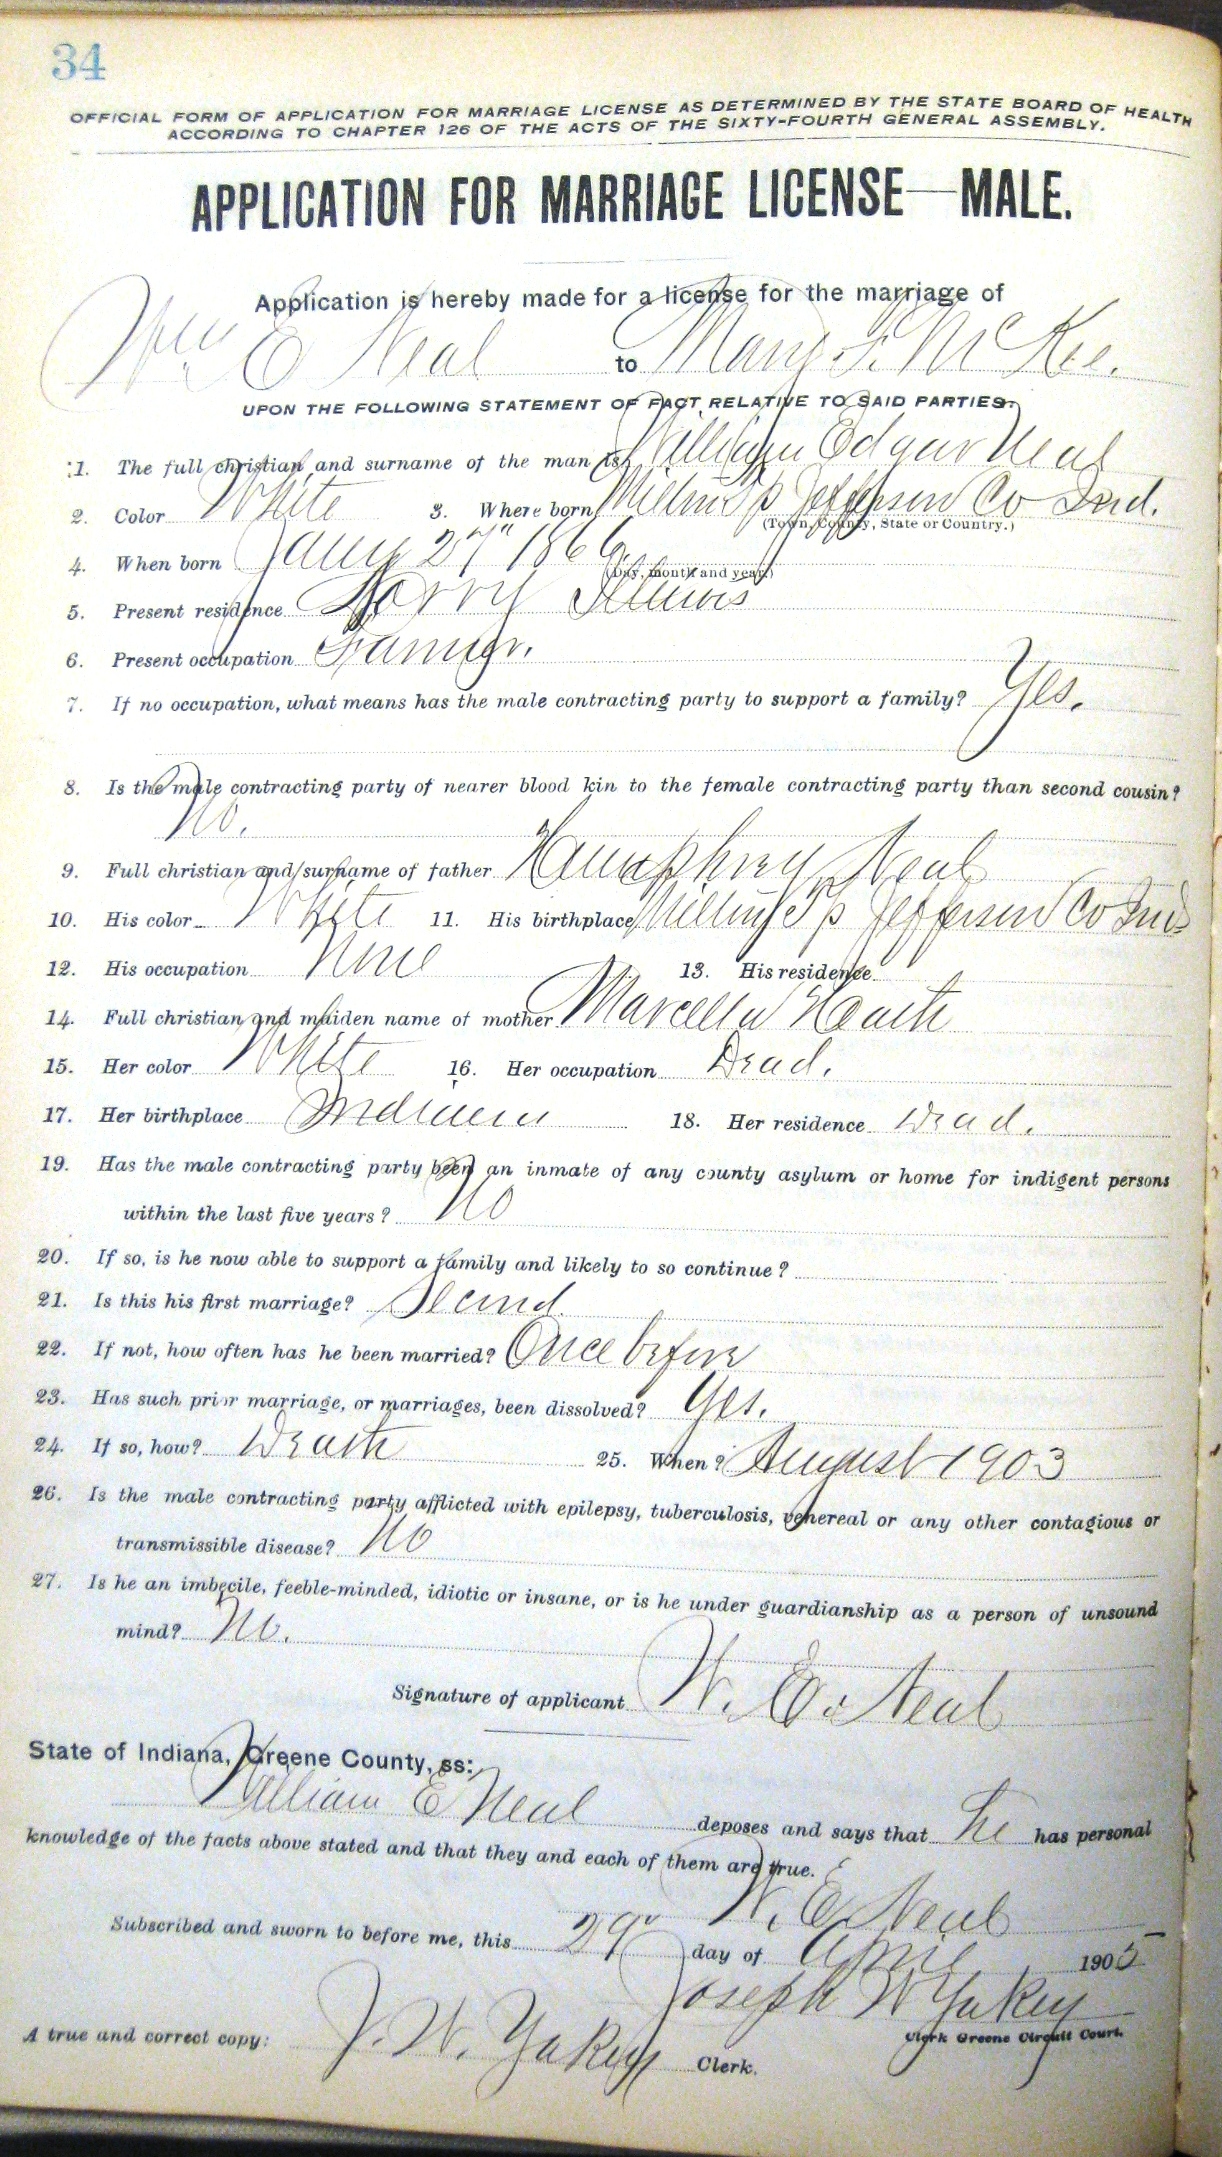 34
OFFICIAL FORM OF APPLICATION FOR MARRIAGE LICENSE AS DETERMINED BY THE STATE BOARD OF HEALTH
ACCORDING TO CHAPTER 126 OF THE ACTS OF THE SIXTY-FOURTH GENERAL ASSEMBLY.
APPLICATION FOR MARRIAGE LICENSE—MALE.
Application is hereby made for a license for the marriage of
Wm E Neal to Mary F. McKee.
UPON THE FOLLOWING STATEMENT OF FACT RELATIVE TO SAID PARTIES:
1. The full christian and surname of the man is William Edgar Neal
2. Color White 3. Where born Milton Tp Jefferson Co Ind.
(Town, County, State or Country.)
4. When born Jany 27" 1866
(Day, month and year.)
5. Present residence Illinois
6. Present occupation Farmer.
7. If no occupation, what means has the male contracting party to support a family? Yes.
8. Is the male contracting party of nearer blood kin to the female contracting party than second cousin?
No.
9. Full christian and surname of father Humphrey Neal
10. His color White 11. His birthplace Milton Tp Jefferson Co Ind
12. His occupation None 13. His residence
14. Full christian and maiden name of mother Marcella Heath
15. Her color White 16. Her occupation Dead.
17. Her birthplace Indiana 18. Her residence Dead.
19. Has the male contracting party been an inmate of any county asylum or home for indigent persons
within the last five years? No
20. If so, is he now able to support a family and likely to so continue?
21. Is this his first marriage? Second
22. If not, how often has he been married? Once before
23. Has such prior marriage, or marriages, been dissolved? Yes.
24. If so, how? Death 25. When? August 1903
26. Is the male contracting party afflicted with epilepsy, tuberculosis, venereal or any other contagious or
transmissible disease? No
27. Is he an imbecile, feeble-minded, idiotic or insane, or is he under guardianship as a person of unsound
mind? No.
Signature of applicant W. E. Neal
State of Indiana, Greene County, ss:
William E Neal deposes and says that he has personal
knowledge of the facts above stated and that they and each of them are true.
W. E. Neal
Subscribed and sworn to before me, this 29" day of April 1905
Joseph W Yakey
Clerk Greene Circuit Court.
A true and correct copy: J. W. Yakey Clerk.